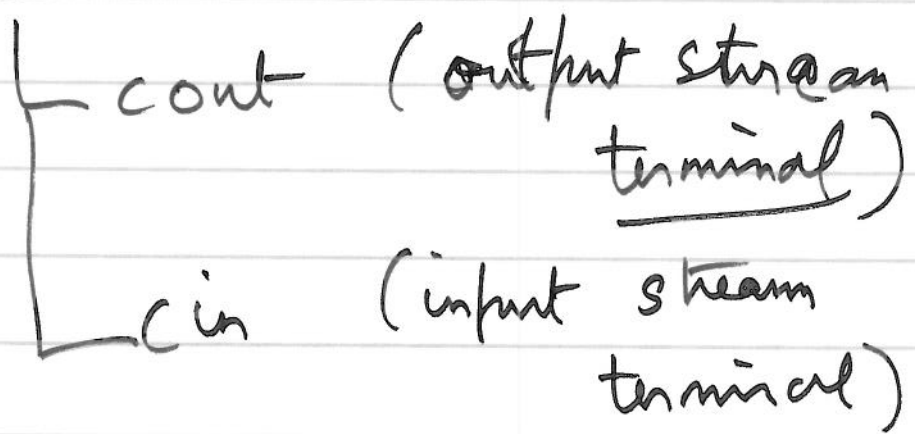 cout (output stream
terminal)
cin (input stream
terminal)